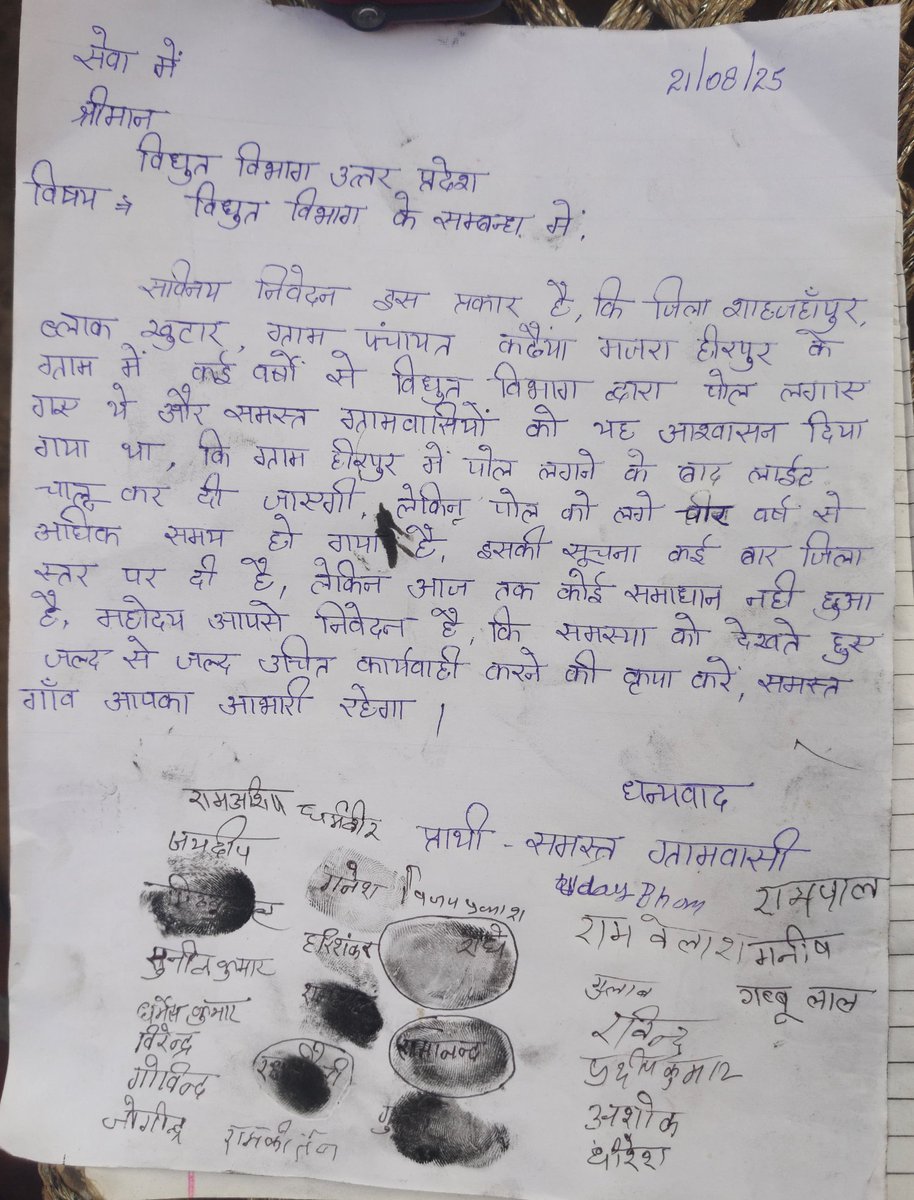 सेवा में
21/08/25
श्रीमान
विधुत विभाग उत्तर प्रदेश
विषय ⇒ विधुत विभाग के सम्बन्ध में.
सविनय निवेदन इस प्रकार है, कि जिला शाहजहाँपुर,
ब्लाक खुटार, ग्राम पंचायत कढैया मजरा हीरपुर के
ग्राम में कई वर्षों से विधुत विभाग द्वारा पोल लगाए
गए थे और समस्त ग्रामवासियों को यह आश्वासन दिया
गया था, कि ग्राम हीरपुर में पोल लगने के बाद लाईट
चालू कर दी जाएगी, लेकिन पोल को लगे वर्ष से
अधिक समय हो गया है, इसकी सूचना कई बार जिला
स्तर पर दी है, लेकिन आज तक कोई समाधान नही हुआ
है, महोदय आपसे निवेदन है, कि समस्या को देखते हुए
जल्द से जल्द उचित कार्यवाही करने की कृपा करें, समस्त
गाँव आपका आभारी रहेगा ।
धन्यवाद
प्रार्थी - समस्त ग्रामवासी
धर्मवीर
जयदीप
गनेश विजय प्रकाश रामपाल
सुनील कुमार हरिशंकर राधे राम वेलाश मनीष
धर्मेस कुमार गुलाब गब्बू लाल
विरेन्द्र रामानन्द रविन्द्र
गोविन्द प्रदीप कुमार
जोगिन्द्र रामकीर्तन अशोक
धीरेश